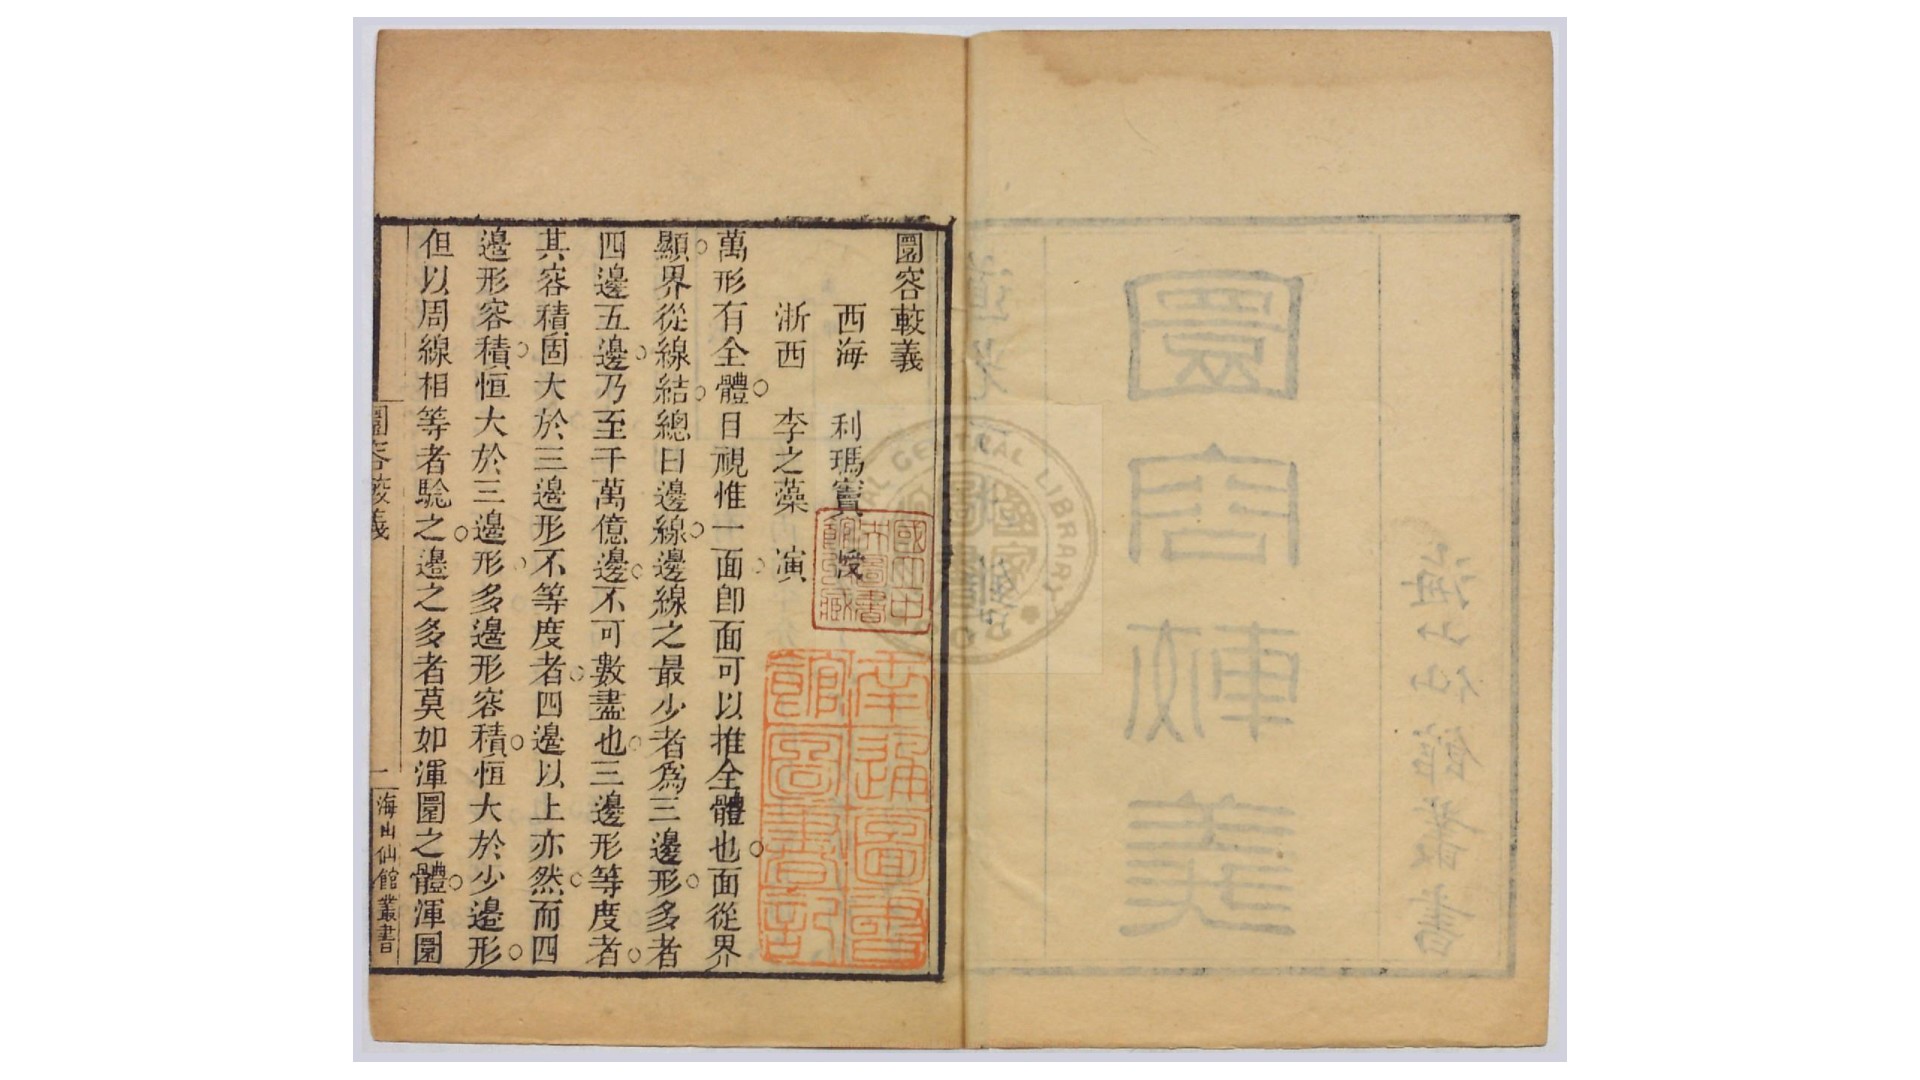 圜容較義
西海 利瑪竇 授
浙西 李之藻 演
萬形有全體。目視惟一面。即面可以推全體也。面從界
顯。界從線結。總曰邊線。邊線之最少者為三邊形。多者
四邊五邊。乃至千萬億邊。不可數盡也。三邊形等度者。
其容積固大於三邊形不等度者。四邊以上亦然。而四
邊形容積。恒大於三邊形。多邊形容積。恒大於少邊形。
但以周線相等者騐之。邊之多者。莫如渾圜之體。渾圜
圜容較義
一
海山仙館叢書
國立中央圖書館收藏
南通圖書館圖書記
CENTRAL LIBRARY
圜容較義
海山仙館叢書